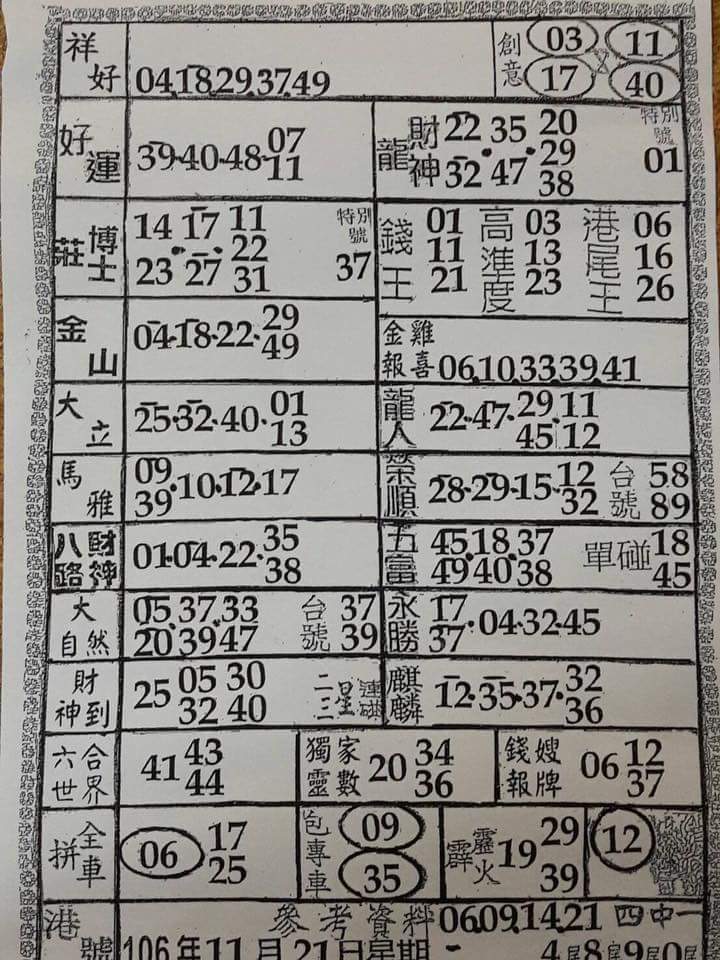 祥好 04.18.29.37.49 創意 03 11 17 40
好運 39·40·48· 07 11
財神龍 22 35 20 29 32 47 38 特別號 01
博士莊 14 17 11 22 23 27 31 特別號 37
錢王 01 11 21 高準度 03 13 23 港尾王 06 16 26
金山 04·18·22· 29 49
金雞報喜 06.10.33.39.41
大立 25·32·40· 01 13
龍人 22·47· 29 11 45 12
馬雅 09 39 ·10·12·17
榮順 28·29·15· 12 32 台號 58 89
八路財神 01·04·22· 35 38
五富 45.18.37 49 40 38 單碰 18 45
大自然 05.37.33 20 39 47 台號 37 39
永勝 17 37 ·04·32·45
財神到 25 05 30 32 40 二三星連碰
麒麟 12·35·37· 32 36
六合世界 41 43 44
獨家靈數 20 34 36
錢嫂報牌 06 12 37
全車拼 06 17 25
包專車 09 35
霹靂火 19 29 39
12
港號 參考資料 06.09.14.21 四中一
106年11月21日星期